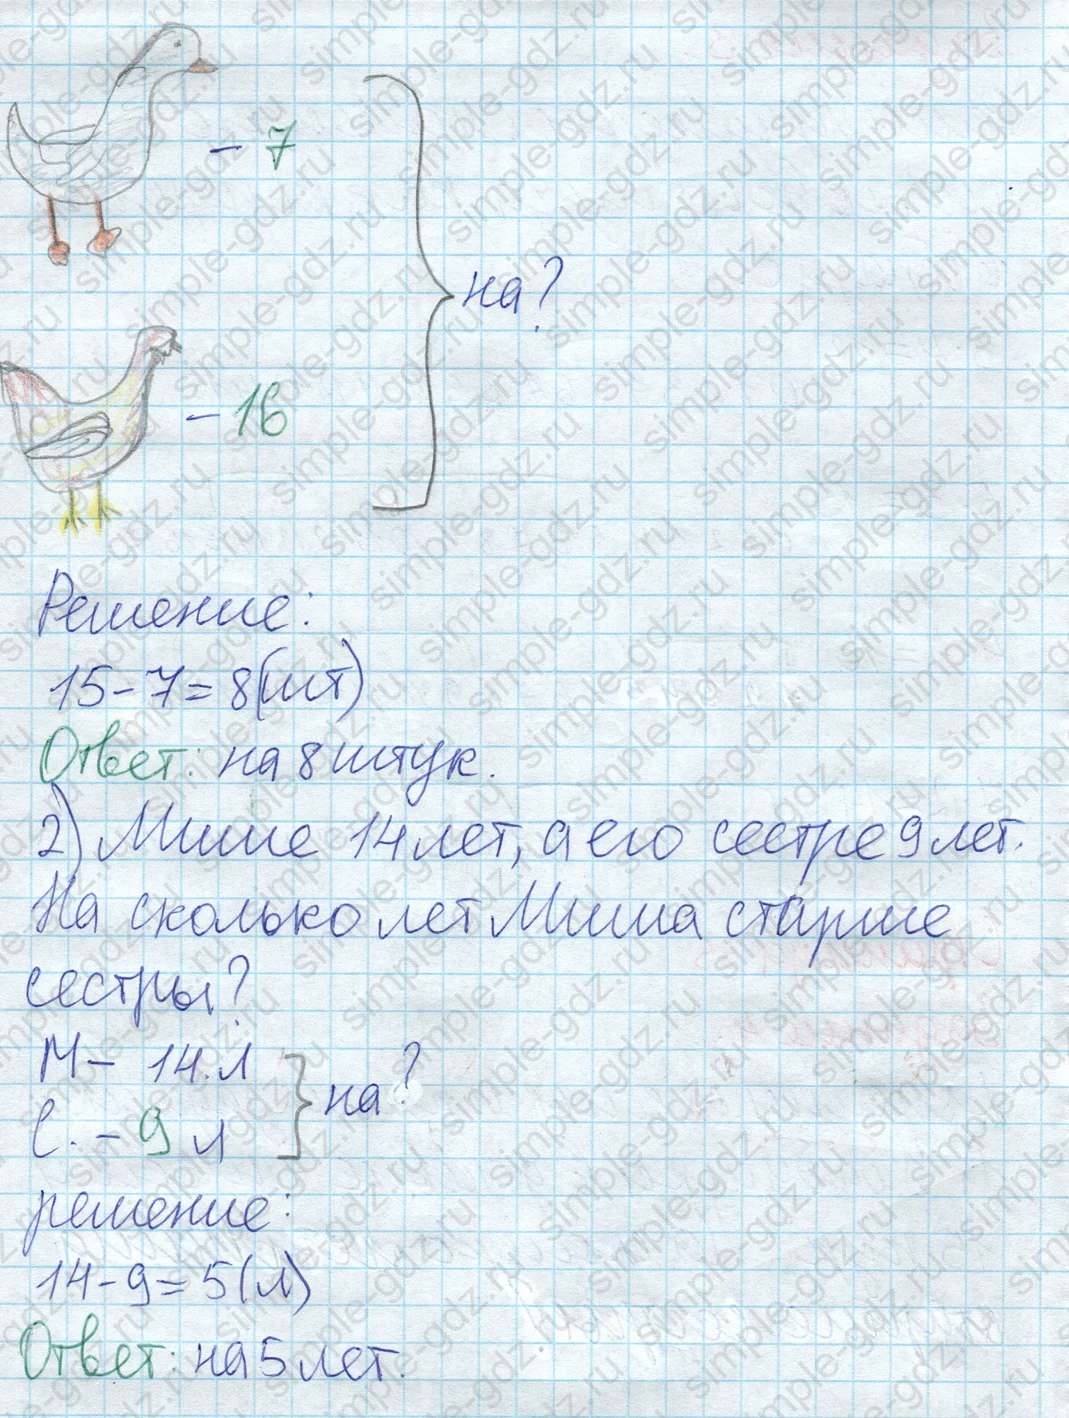 - 7
на?
- 16
Решение:
15-7=8(шт)
Ответ: на 8 штук.
2) Мише 14 лет, а его сестре 9 лет.
На сколько лет Миша старше
сестры?
М - 14 л
С. - 9 л
на?
решение:
14-9=5(л)
Ответ: на 5 лет.
simple-gdz.ru